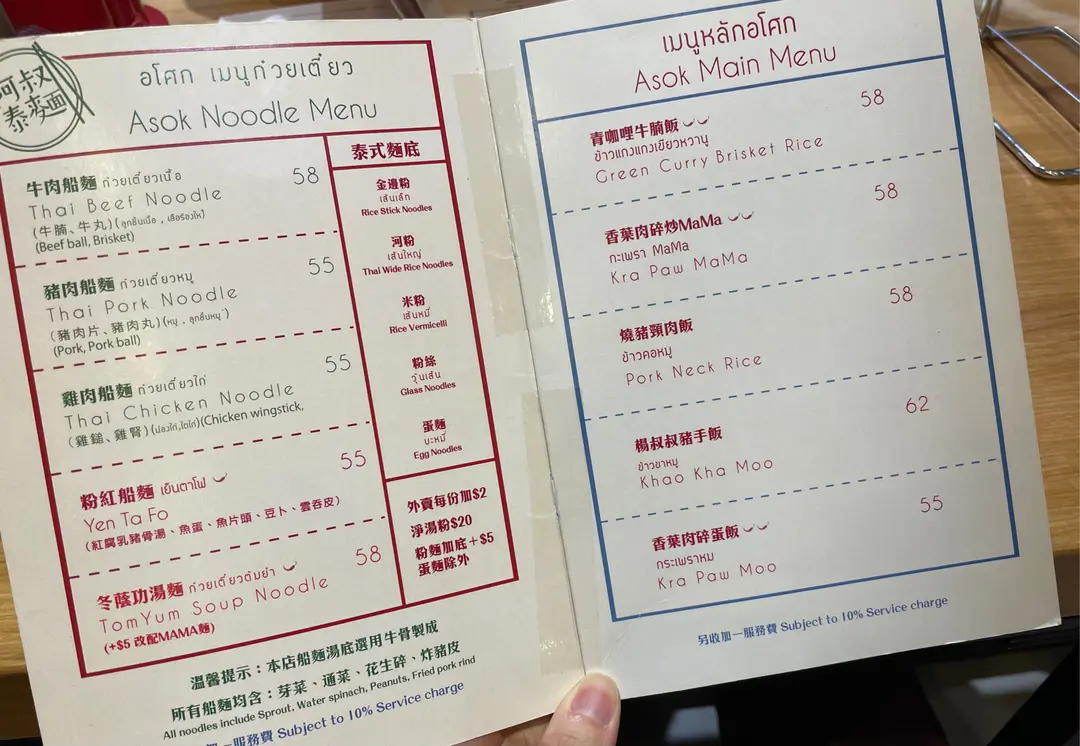 阿叔
泰麥麵
อโศก เมนูก๋วยเตี๋ยว
Asok Noodle Menu
牛肉船麵 ก๋วยเตี๋ยวเนื้อ 58
Thai Beef Noodle
(牛腩、牛丸)(ลูกชิ้นเนื้อ , เสือร้องไห้)
(Beef ball, Brisket)
豬肉船麵 ก๋วยเตี๋ยวหมู 55
Thai Pork Noodle
(豬肉片、豬肉丸)(หมู , ลูกชิ้นหมู)
(Pork, Pork ball)
雞肉船麵 ก๋วยเตี๋ยวไก่ 55
Thai Chicken Noodle
(雞鎚、雞腎)(น่องไก่,ไตไก่)(Chicken wingstick,
粉紅船麵 เย็นตาโฟ 55
Yen Ta Fo
(紅腐乳豬骨湯、魚蛋、魚片頭、豆卜、雲吞皮)
冬蔭功湯麵 ก๋วยเตี๋ยวต้มยำ 58
TomYum Soup Noodle
(+$5 改配MAMA麵)
泰式麵底
金邊粉
เส้นเล็ก
Rice Stick Noodles
河粉
เส้นใหญ่
Thai Wide Rice Noodles
米粉
เส้นหมี่
Rice Vermicelli
粉絲
วุ้นเส้น
Glass Noodles
蛋麵
บะหมี่
Egg Noodles
外賣每份加$2
淨湯粉$20
粉麵加底+$5
蛋麵除外
溫馨提示：本店船麵湯底選用牛骨製成
所有船麵均含：芽菜、通菜、花生碎、炸豬皮
All noodles include Sprout, Water spinach, Peanuts, Fried pork rind
加一服務費 Subject to 10% Service charge
เมนูหลักอโศก
Asok Main Menu
青咖哩牛腩飯 58
ข้าวแกงแกงเขียวหวานุ
Green Curry Brisket Rice
香葉肉碎炒MaMa 58
กะเพรา MaMa
Kra Paw MaMa
燒豬頸肉飯 58
ข้าวคอหมู
Pork Neck Rice
楊叔叔豬手飯 62
ข้าวขาหมู
Khao Kha Moo
香葉肉碎蛋飯 55
กระเพราหม
Kra Paw Moo
另收加一服務費 Subject to 10% Service charge